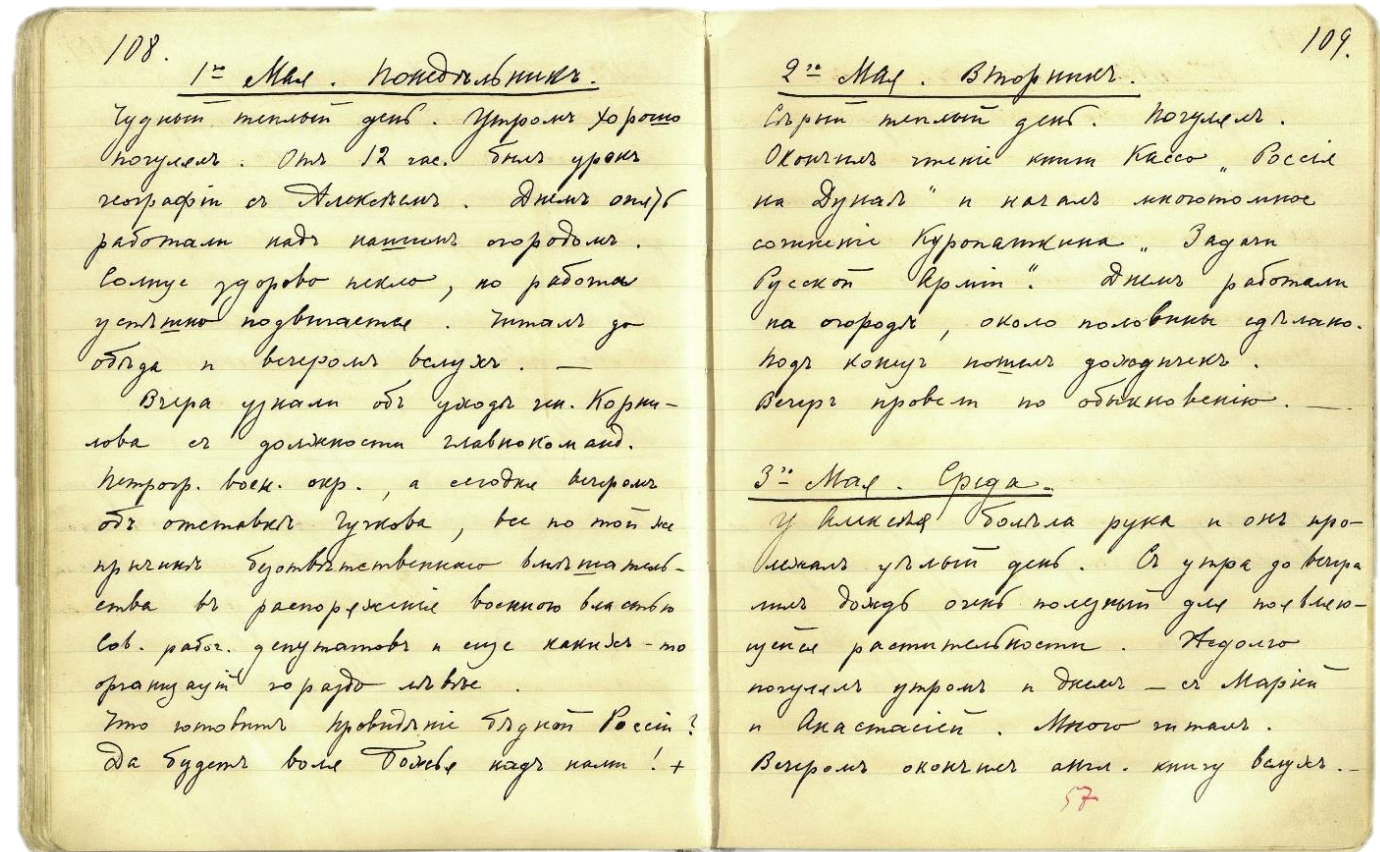 108.
1го Мая. Понедѣльникъ.
Чудный теплый день. Утромъ хорошо
погулялъ. Отъ 12 час. былъ урокъ
географіи съ Алексѣемъ. Днемъ опять
работали надъ нашимъ огородомъ.
Солнце здорово пекло, но работа
успѣшно подвигается. Читалъ до
обѣда и вечеромъ вслухъ. —
Вчера узнали объ уходѣ ген. Корни-
лова съ должности главнокоманд.
Петрогр. воен. окр., а сегодня вечеромъ
объ отставкѣ Гучкова, все по той же
причинѣ безотвѣтственнаго вмѣшатель-
ства въ распоряженія военною властью
Сов. рабоч. депутатовъ и еще какихъ-то
организацій гораздо лѣвѣе.
Что готовитъ Провидѣніе бѣдной Россіи?
Да будетъ воля Божья надъ нами! +
109.
2го Мая. Вторникъ.
Сѣрый теплый день. Погулялъ.
Окончилъ чтеніе книги Кассо „Россія
на Дунаѣ" и началъ многотомное
сочиненіе Куропаткина „Задачи
Русской Арміи". Днемъ работали
на огородѣ, около половины сдѣлано.
Подъ конецъ пошелъ дождичекъ.
Вечеръ провели по обыкновенію. —
3го Мая. Среда.
У Алексѣя болѣла рука и онъ про-
лежалъ цѣлый день. Съ утра до вечера
лилъ дождь очень полезный для появляю-
щейся растительности. Недолго
погулялъ утромъ и днемъ — съ Маріей
и Анастасіей. Много читалъ.
Вечеромъ окончилъ англ. книгу вслухъ. —
57